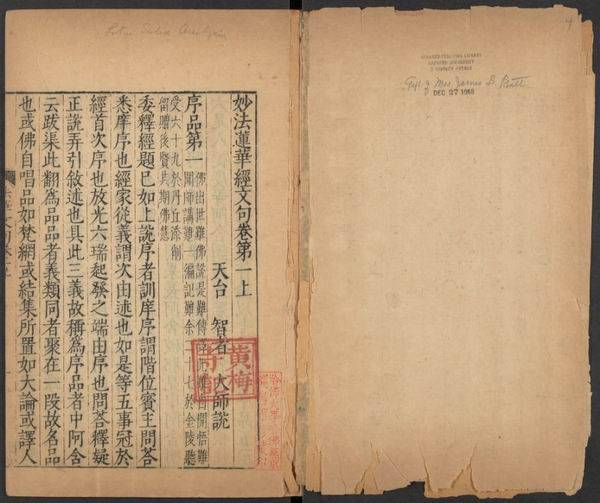 Lotus Sutra Analysis
妙法蓮華經文句卷第一上
天台 智者 大師說
序品第一
佛出世難佛說是難傳此難自開悟難
聞師講難一徧記難余七於金陵聽
受六十九於丹丘添削
留贈後賢共期佛慧
委釋經題已如上說序者訓庠序謂階位賓主問答
悉庠序也經家從義謂次由述也如是等五事冠於
經首次序也放光六瑞起發之端由序也問荅釋疑
正說弄引敘述也具此三義故稱爲序品者中阿含
云跋渠此翻爲品品者義類同者聚在一段故名品
也或佛自唱品如梵網或結集所置如大論或譯人
黃梅
HARVARD-YENCHING LIBRARY
HARVARD UNIVERSITY
2 DIVINITY AVENUE
Gift of Mrs James B. Pratt
DEC 27